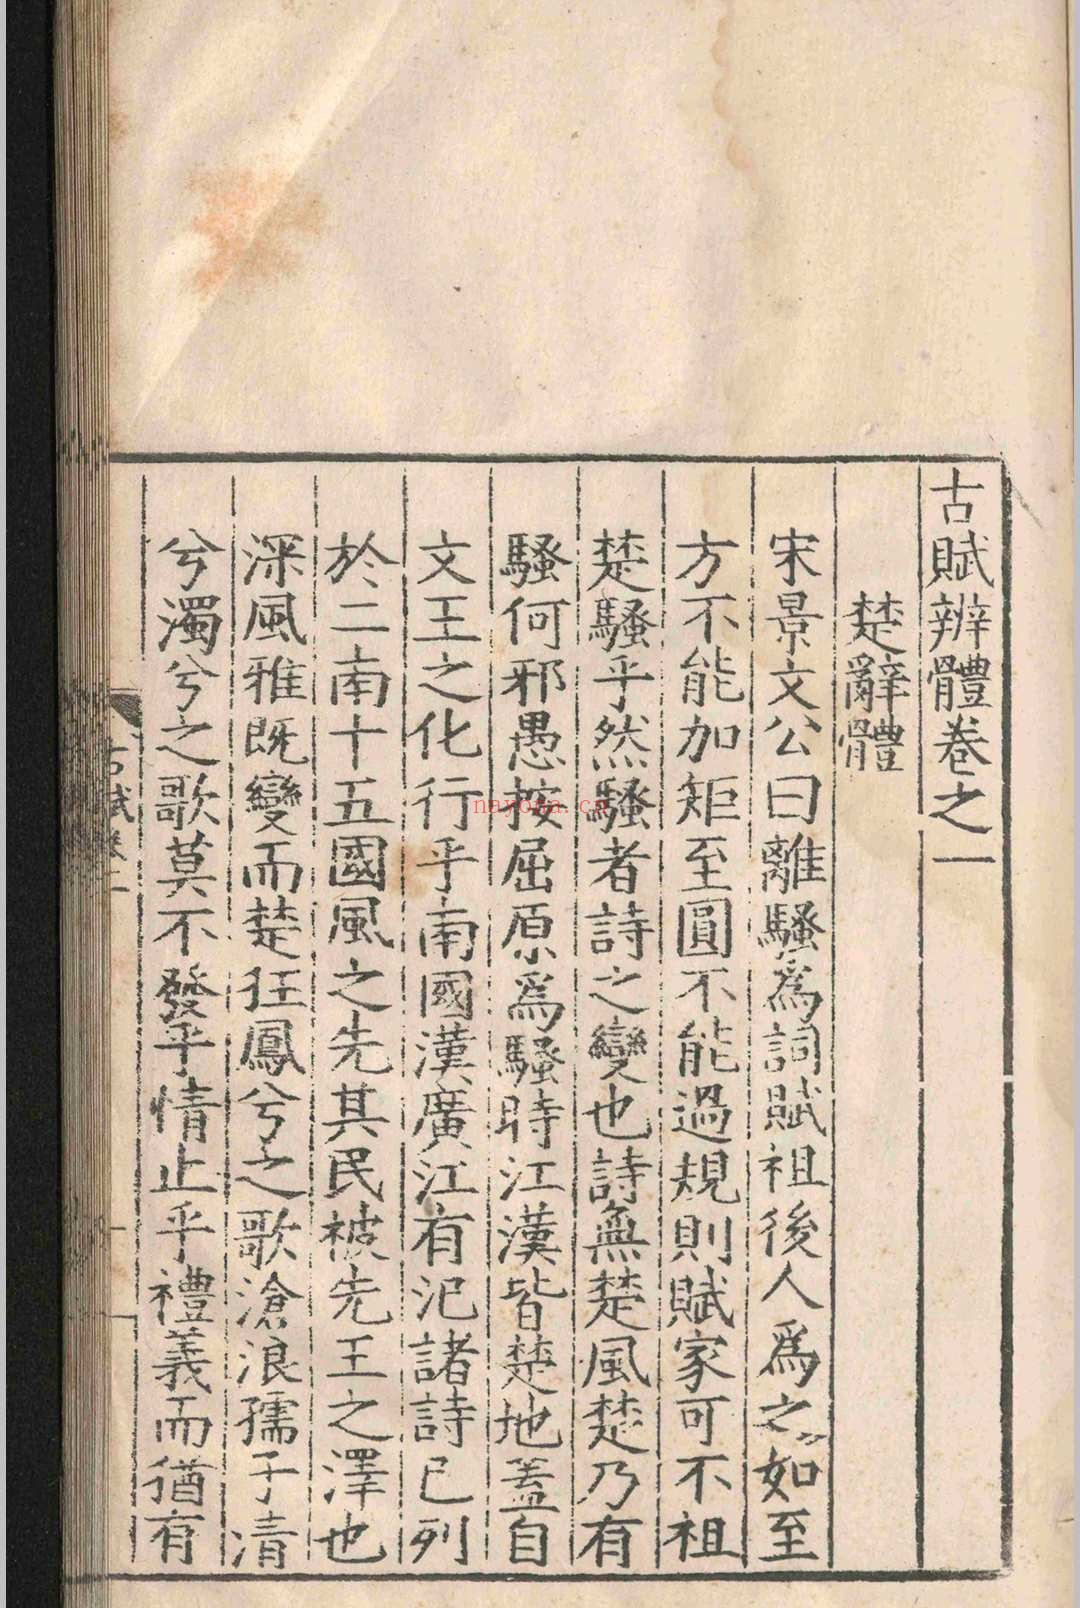 古賦辨體卷之一
楚辭體
宋景文公曰離騷爲詞賦祖後人爲之如至
方不能加矩至圓不能過規則賦家可不祖
楚騷乎然騷者詩之變也詩無楚風楚乃有
騷何邪愚按屈原爲騷時江漢皆楚地蓋自
文王之化行乎南國漢廣江有汜諸詩已列
於二南十五國風之先其民被先王之澤也
深風雅既變而楚狂鳳兮之歌滄浪孺子清
兮濁兮之歌莫不發乎情止乎禮義而猶有
nayona.cn